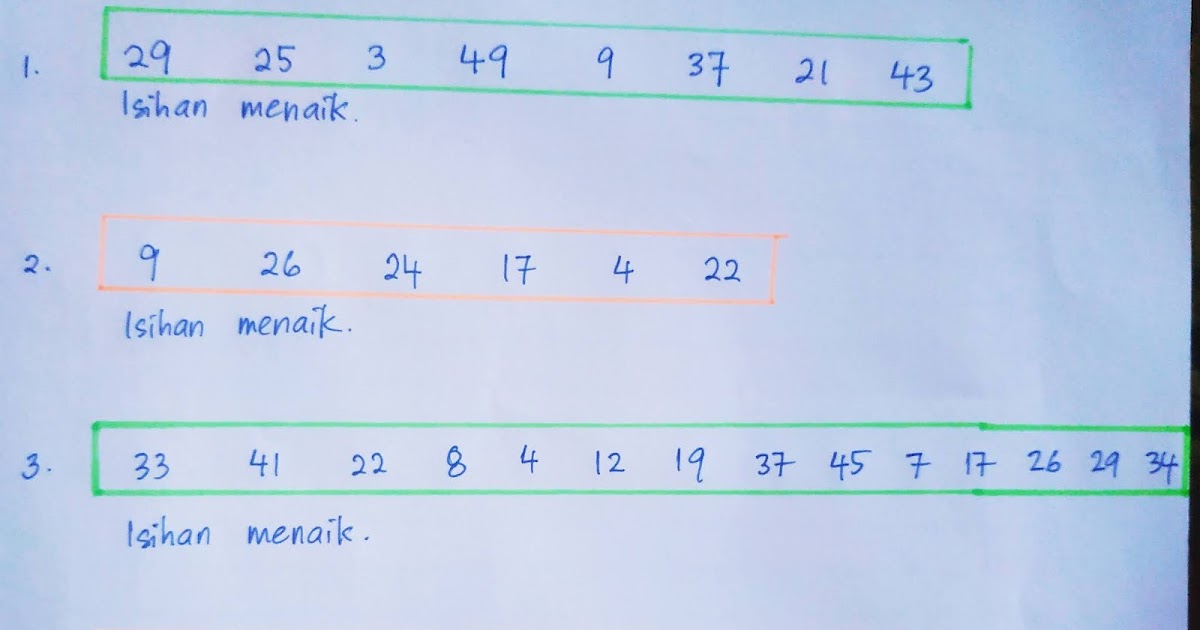 1. 29 25 3 49 9 37 21 43
Isihan menaik.
2. 9 26 24 17 4 22
Isihan menaik.
3. 33 41 22 8 4 12 19 37 45 7 17 26 29 34
Isihan menaik.